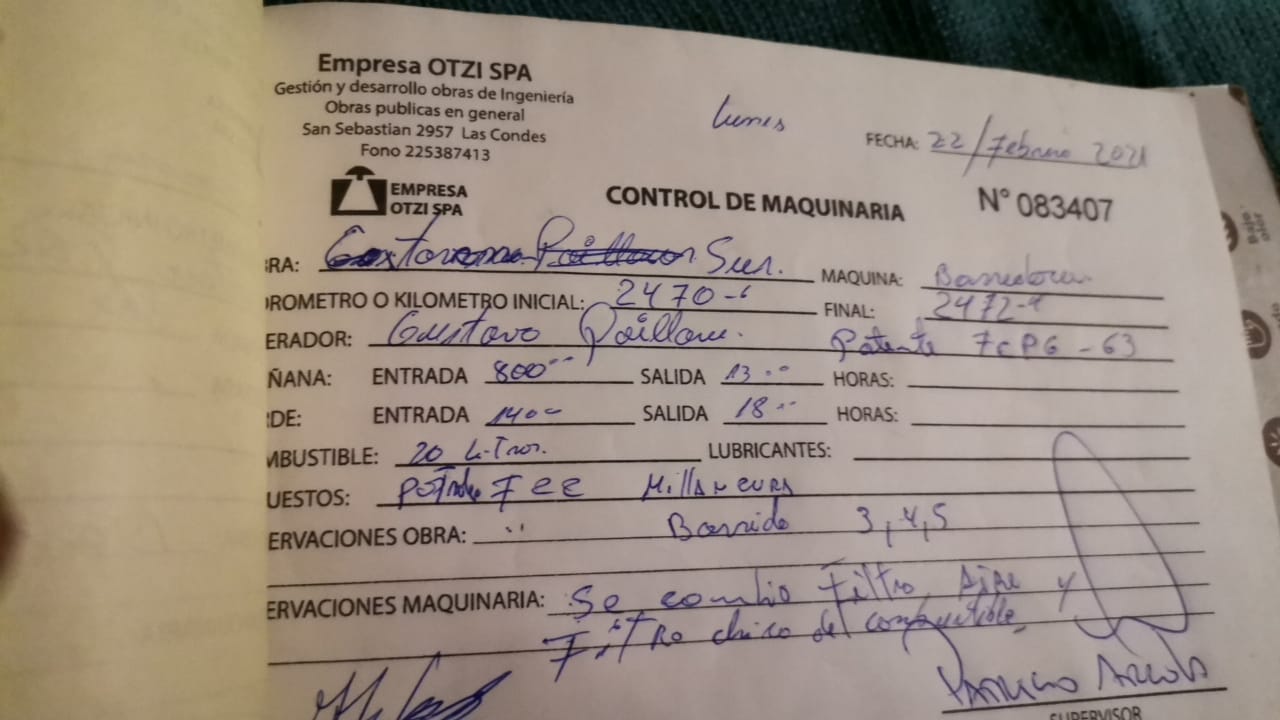 Empresa OTZI SPA
Gestión y desarrollo obras de Ingeniería
Obras publicas en general
San Sebastian 2957 Las Condes
Fono 225387413
lunes
FECHA: 22/Febrero 2021
EMPRESA
OTZI SPA
CONTROL DE MAQUINARIA
N° 083407
BRA: Sur. MAQUINA: Barredora
OROMETRO O KILOMETRO INICIAL: 2470-6 FINAL: 2472-9
ERADOR: Gustavo Paillan. Patente FCPG-63
ÑANA: ENTRADA 800 SALIDA 13 HORAS:
RDE: ENTRADA 1400 SALIDA 18 HORAS:
MBUSTIBLE: 20 LiTros. LUBRICANTES:
UESTOS:
ERVACIONES OBRA: Barrido 3,4,5
ERVACIONES MAQUINARIA: Se cambio Filtro Aire y
FilTro chico del combustible,
SUPERVISOR